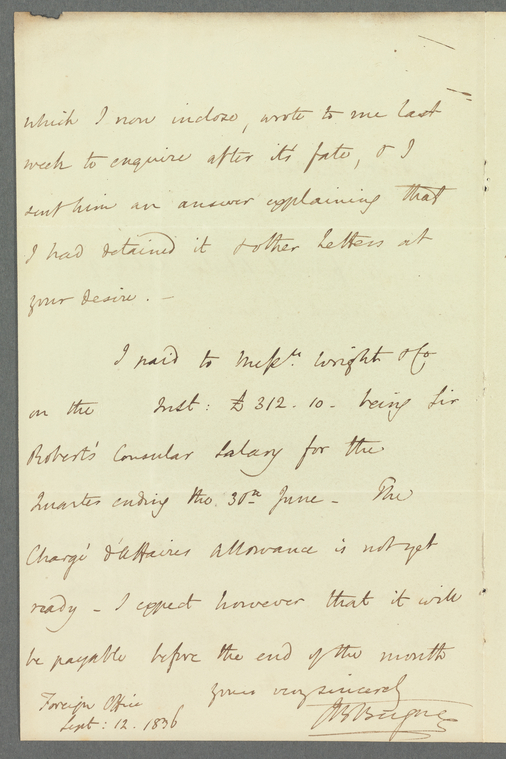 which I now inclose, wrote to me last
week to enquire after its fate, & I
sent him an answer explaining that
I had detained it & other Letters at
your desire. —
I paid to Messrs. Wright & Co
on the Inst: £312.10 - being Sir
Robert's Consular Salary for the
Quarter ending the 30th June - The
Chargé d'Affaires Allowance is not yet
ready - I expect however that it will
be payable before the end of the month
yours very sincerely
Foreign Office
Sept: 12. 1836